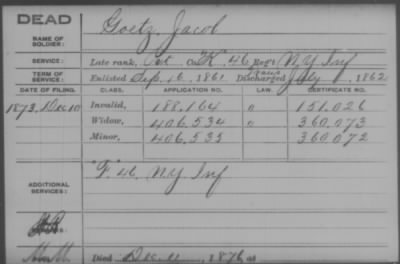 DEAD
NAME OF SOLDIER: Goetz, Jacob
SERVICE: Late rank, Pvt Co. "K", 46 Reg't N.Y. Inf
TERM OF SERVICE: Enlisted Sep. 16, 1861 Discharged July 1, 1862
DATE OF FILING. CLASS. APPLICATION NO. LAW. CERTIFICATE NO.
1873, Dec 10 Invalid, 188,164 " 151,026
Widow, 406,534 " 360,073
Minor, 406,535 360,072
ADDITIONAL SERVICES: "F" 46, N.Y. Inf
Died Dec, 1876, at